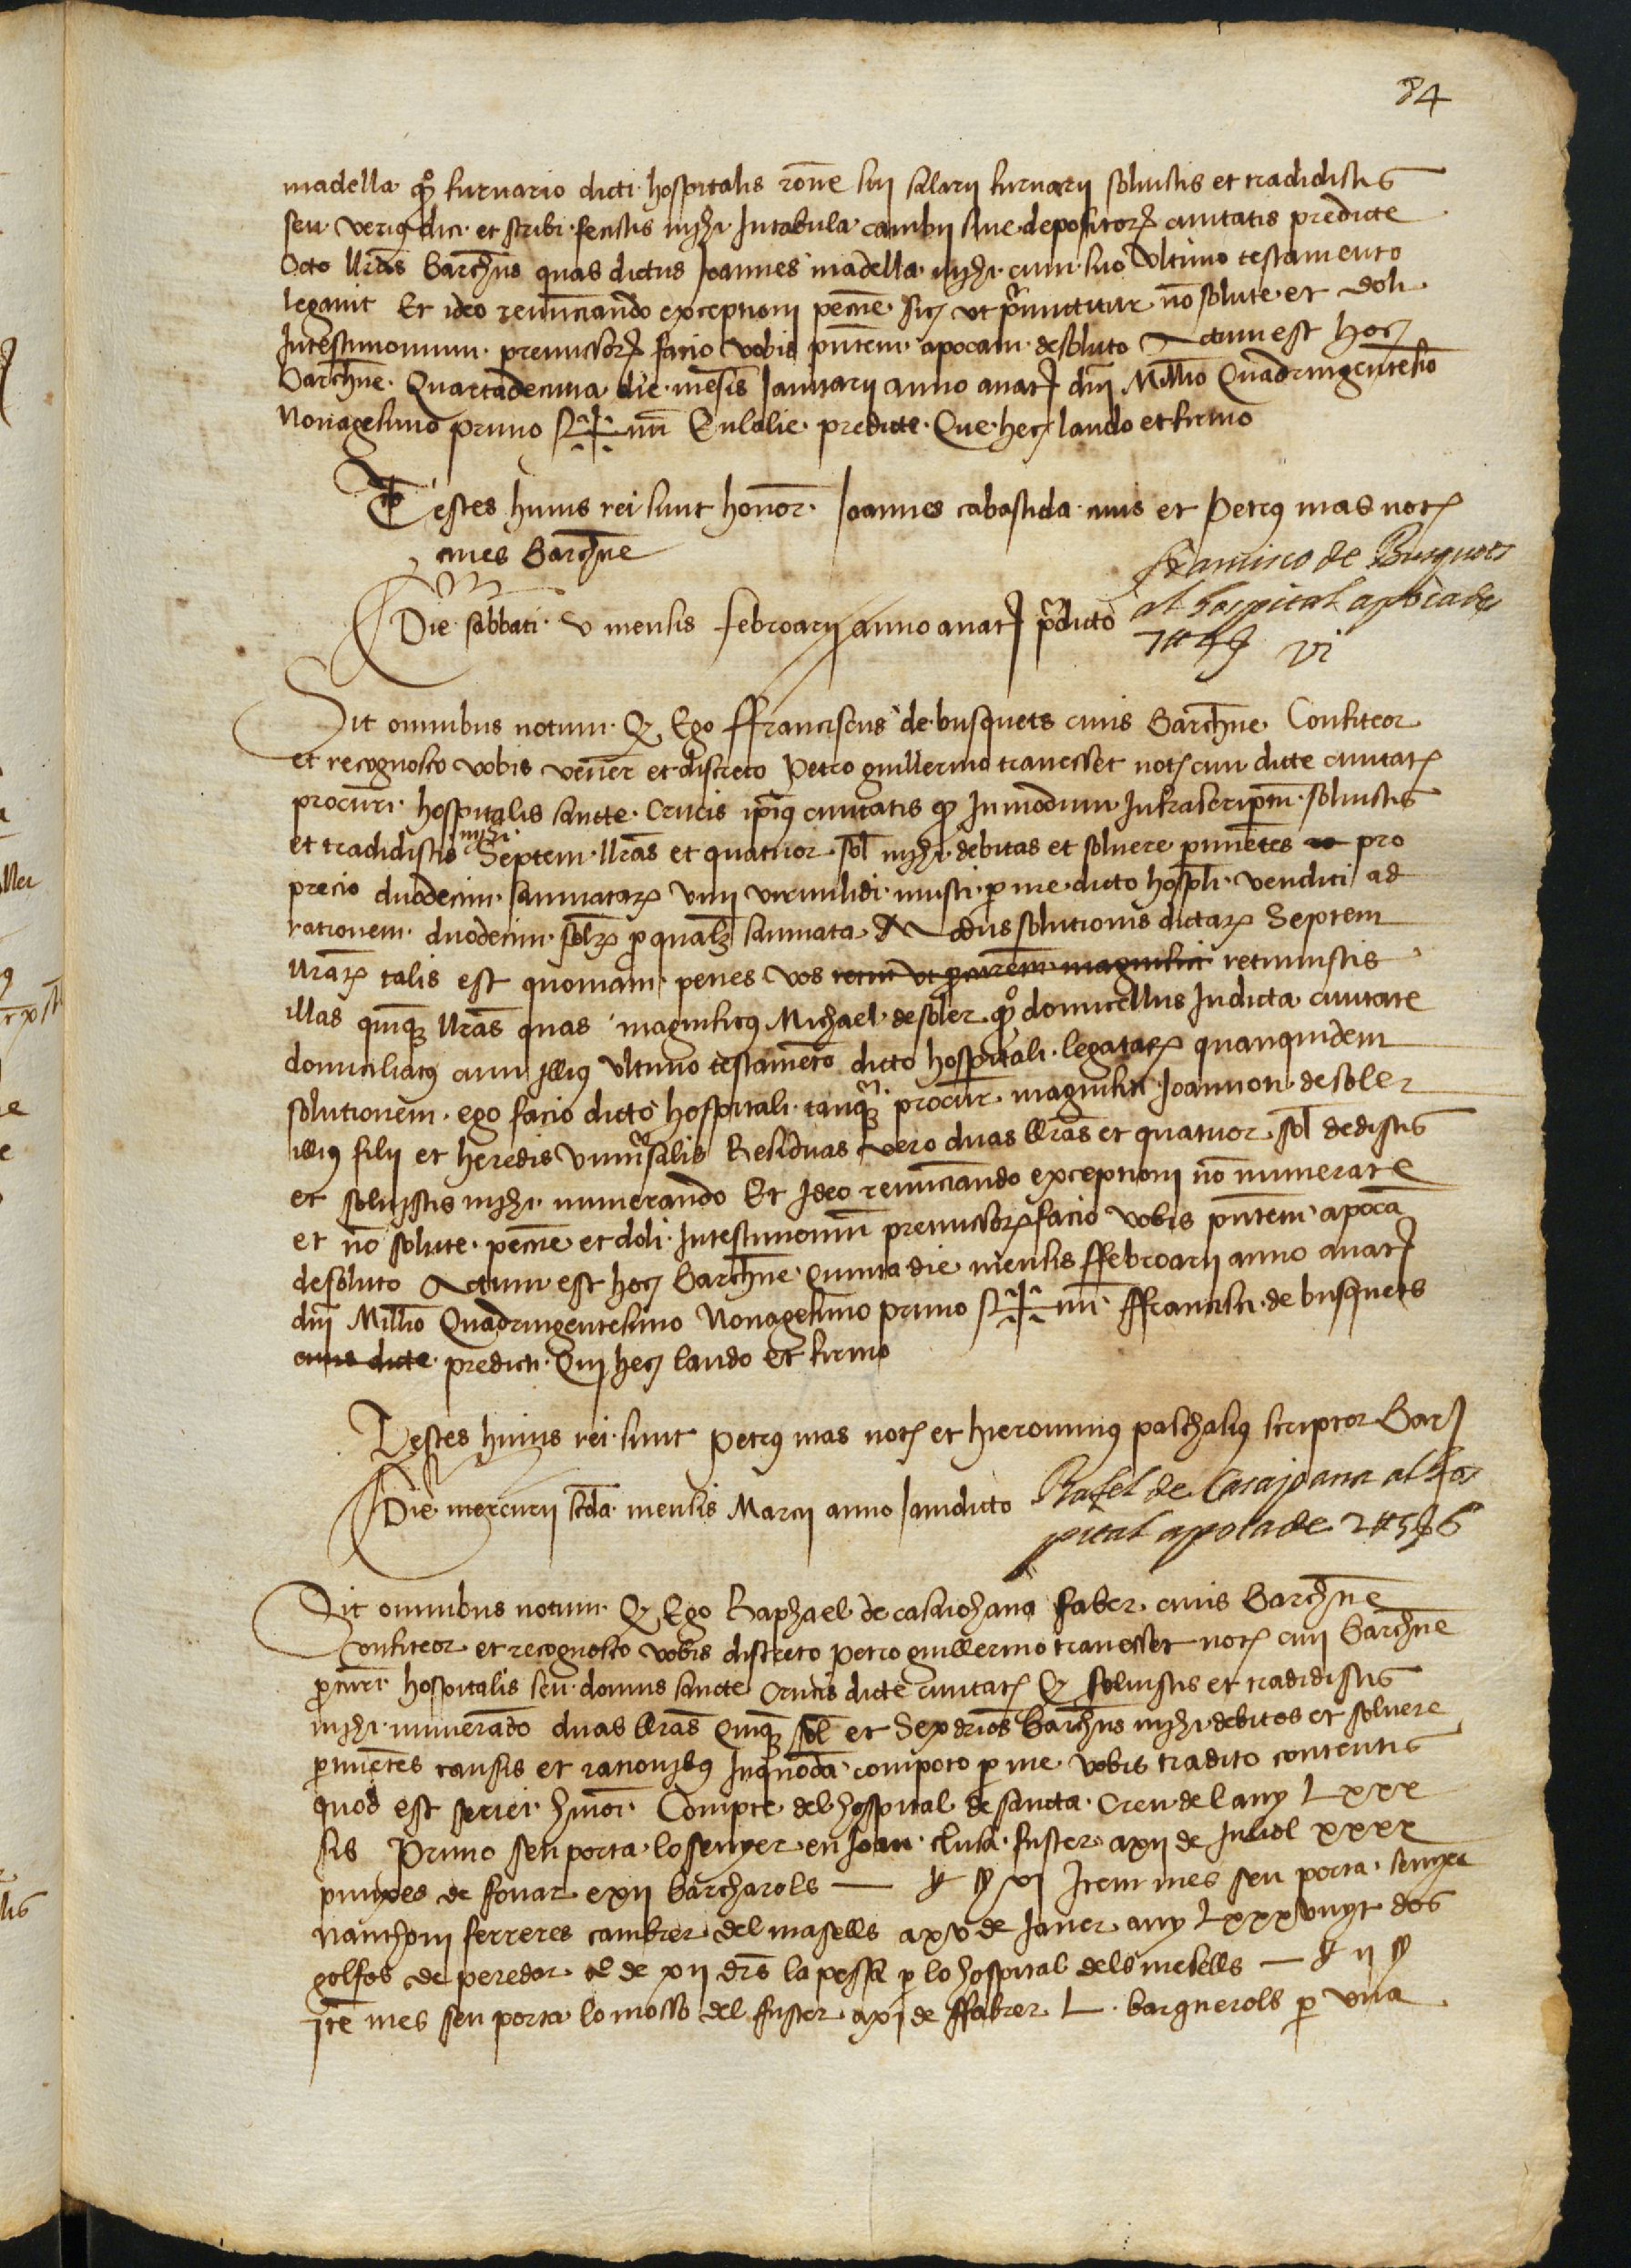 84
madella qº furnario dicti hospitalis rōne sui salarii furnarii soluistis et tradidistis
seu verius dici et scribi fecistis michi In tabula cambii sive depositorꝝ civitatis predicte
Octo llrās barchñs quas dictus Joannes madella michi cum suo ultimo testamento
legavit Et ideo renunciando exceptioni peccūe sicꝫ ut p̄mittitur nō solute et doli
In testimonium premissorꝝ facio vobis pñtem apocam de soluto Actum est hocꝫ
barchñe Quartadecima die mēsis Januarii anno a natꝫ dñi Millīo Quadringentesīo
Nonagesimo primo S✝num Eulalie predicte Que hecꝫ laudo et firmo
Testes huius rei sunt honor. Joannes cabastida civis et Petrus mas notꝫ
cives Barchñe
Die sabbati v mensis febroarii anno a natꝫ p̄dicto
Francisco de Busquets
al hospital apocade
7 ℔ 4 s vi
Sit omnibus notum Qꝫ Ego ffranciscus de busquets civis Barchñe Confiteor
et recognosco vobis vener et discreto Petro guillermo travesset notꝫ civi dicte civitatꝫ
procuri hospitalis sancte Crucis ipīus civitatis qꝫ In modum Infrascriptum soluistis
et tradidistis michi Septem llrās et quatuor sol michi debitas et solvere p̄tinētes pro
precio duodecim saumatarꝫ vini vermilidi musti p me dicto hospli venditi ad
rationem duodecim solꝫ p qualꝫ saumata Modus solutionis dictarꝫ Septem
llrarꝫ talis est quoniam penes vos retin ut procurēm magnifici retinuistis
illas quinqꝫ llrās quas magnificus Michael de soler qº domicellus In dicta civitate
domiciliatus cum illius ultimo testamēto dicto hospitali legatarꝫ quanquidem
solutionem ego facio dicto hospitali tanqꝫ procur magnifici Joannon de soler
illius filii et heredis univ̄salis Residuas vero duas llrās et quatuor sol dedistis
et soluistis michi numerando Et Ideo renunciando exceptioni nō numerate
et nō solute peccūe et doli In testimoniū premissorꝫ facio vobis pñtem apocā
de soluto Actum est hocꝫ Barchñe quinta die mensis ffebroarii anno a natꝫ
dñi Millīo Quadringentesimo Nonagesimo primo S✝num ffrancisci de busquets
civis dicte predicti Qui hecꝫ laudo et firmo
Testes huius rei sunt Petrus mas notꝫ et hieronimus paschalius scriptor Barꝫ
Die mercurii scđa mensis Marcii anno Jamdicto
Rafel de Casajoana al hos
pital apocade 2 ℔ 5 s 6
Sit omnibus notum Qꝫ Ego Raphael de casaiohana faber civis Barchñe
Confiteor et recognosco vobis discreto Petro guillermo travesset notꝫ civi barchñe
p̄curi hospitalis seu domus sancte Crucis dicte civitatꝫ Qꝫ soluistis et tradidistis
michi numerādo duas llrās Quinqꝫ sol et Sex drīos Barchñs michi debitos et solvere
p̄tinētes causis et rationibus In quodā compoto p me vobis tradito contentis
quod est seriei hmōi Compte del hospital de sancta Creu del any Lxxx
sis Primo sen porta lo senyer en Joan clusa fuster a xii de Juliol xxxx
punxes de fonar e xii barcharols — ℔ s vi Item mes sen porta senyer
nanthoni ferreres cambrer del masells a xv de Janer any Lxxxvuyt dos
golfos de peredor de xii drs la pessa p lo hospital dels mesells — ℔ ii s
itē mes sen porta lo mosso del fuster a xi de ffabrer L barguerols p una